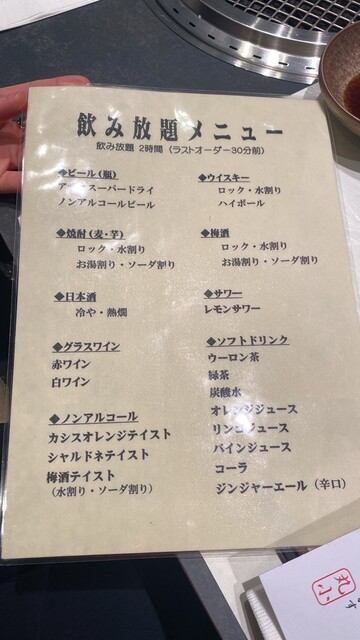 飲み放題メニュー
飲み放題 2時間(ラストオーダー30分前)
◆ビール(瓶)
スーパードライ
ノンアルコールビール
◆焼酎(麦・芋)
ロック・水割り
お湯割り・ソーダ割り
◆日本酒
冷や・熱燗
◆グラスワイン
赤ワイン
白ワイン
◆ノンアルコール
カシスオレンジテイスト
シャルドネテイスト
梅酒テイスト
(水割り・ソーダ割り)
◆ウイスキー
ロック・水割り
ハイボール
◆梅酒
ロック・水割り
お湯割り・ソーダ割り
◆サワー
レモンサワー
◆ソフトドリンク
ウーロン茶
緑茶
炭酸水
オレンジジュース
リンゴジュース
パインジュース
コーラ
ジンジャーエール(辛口)
丸小